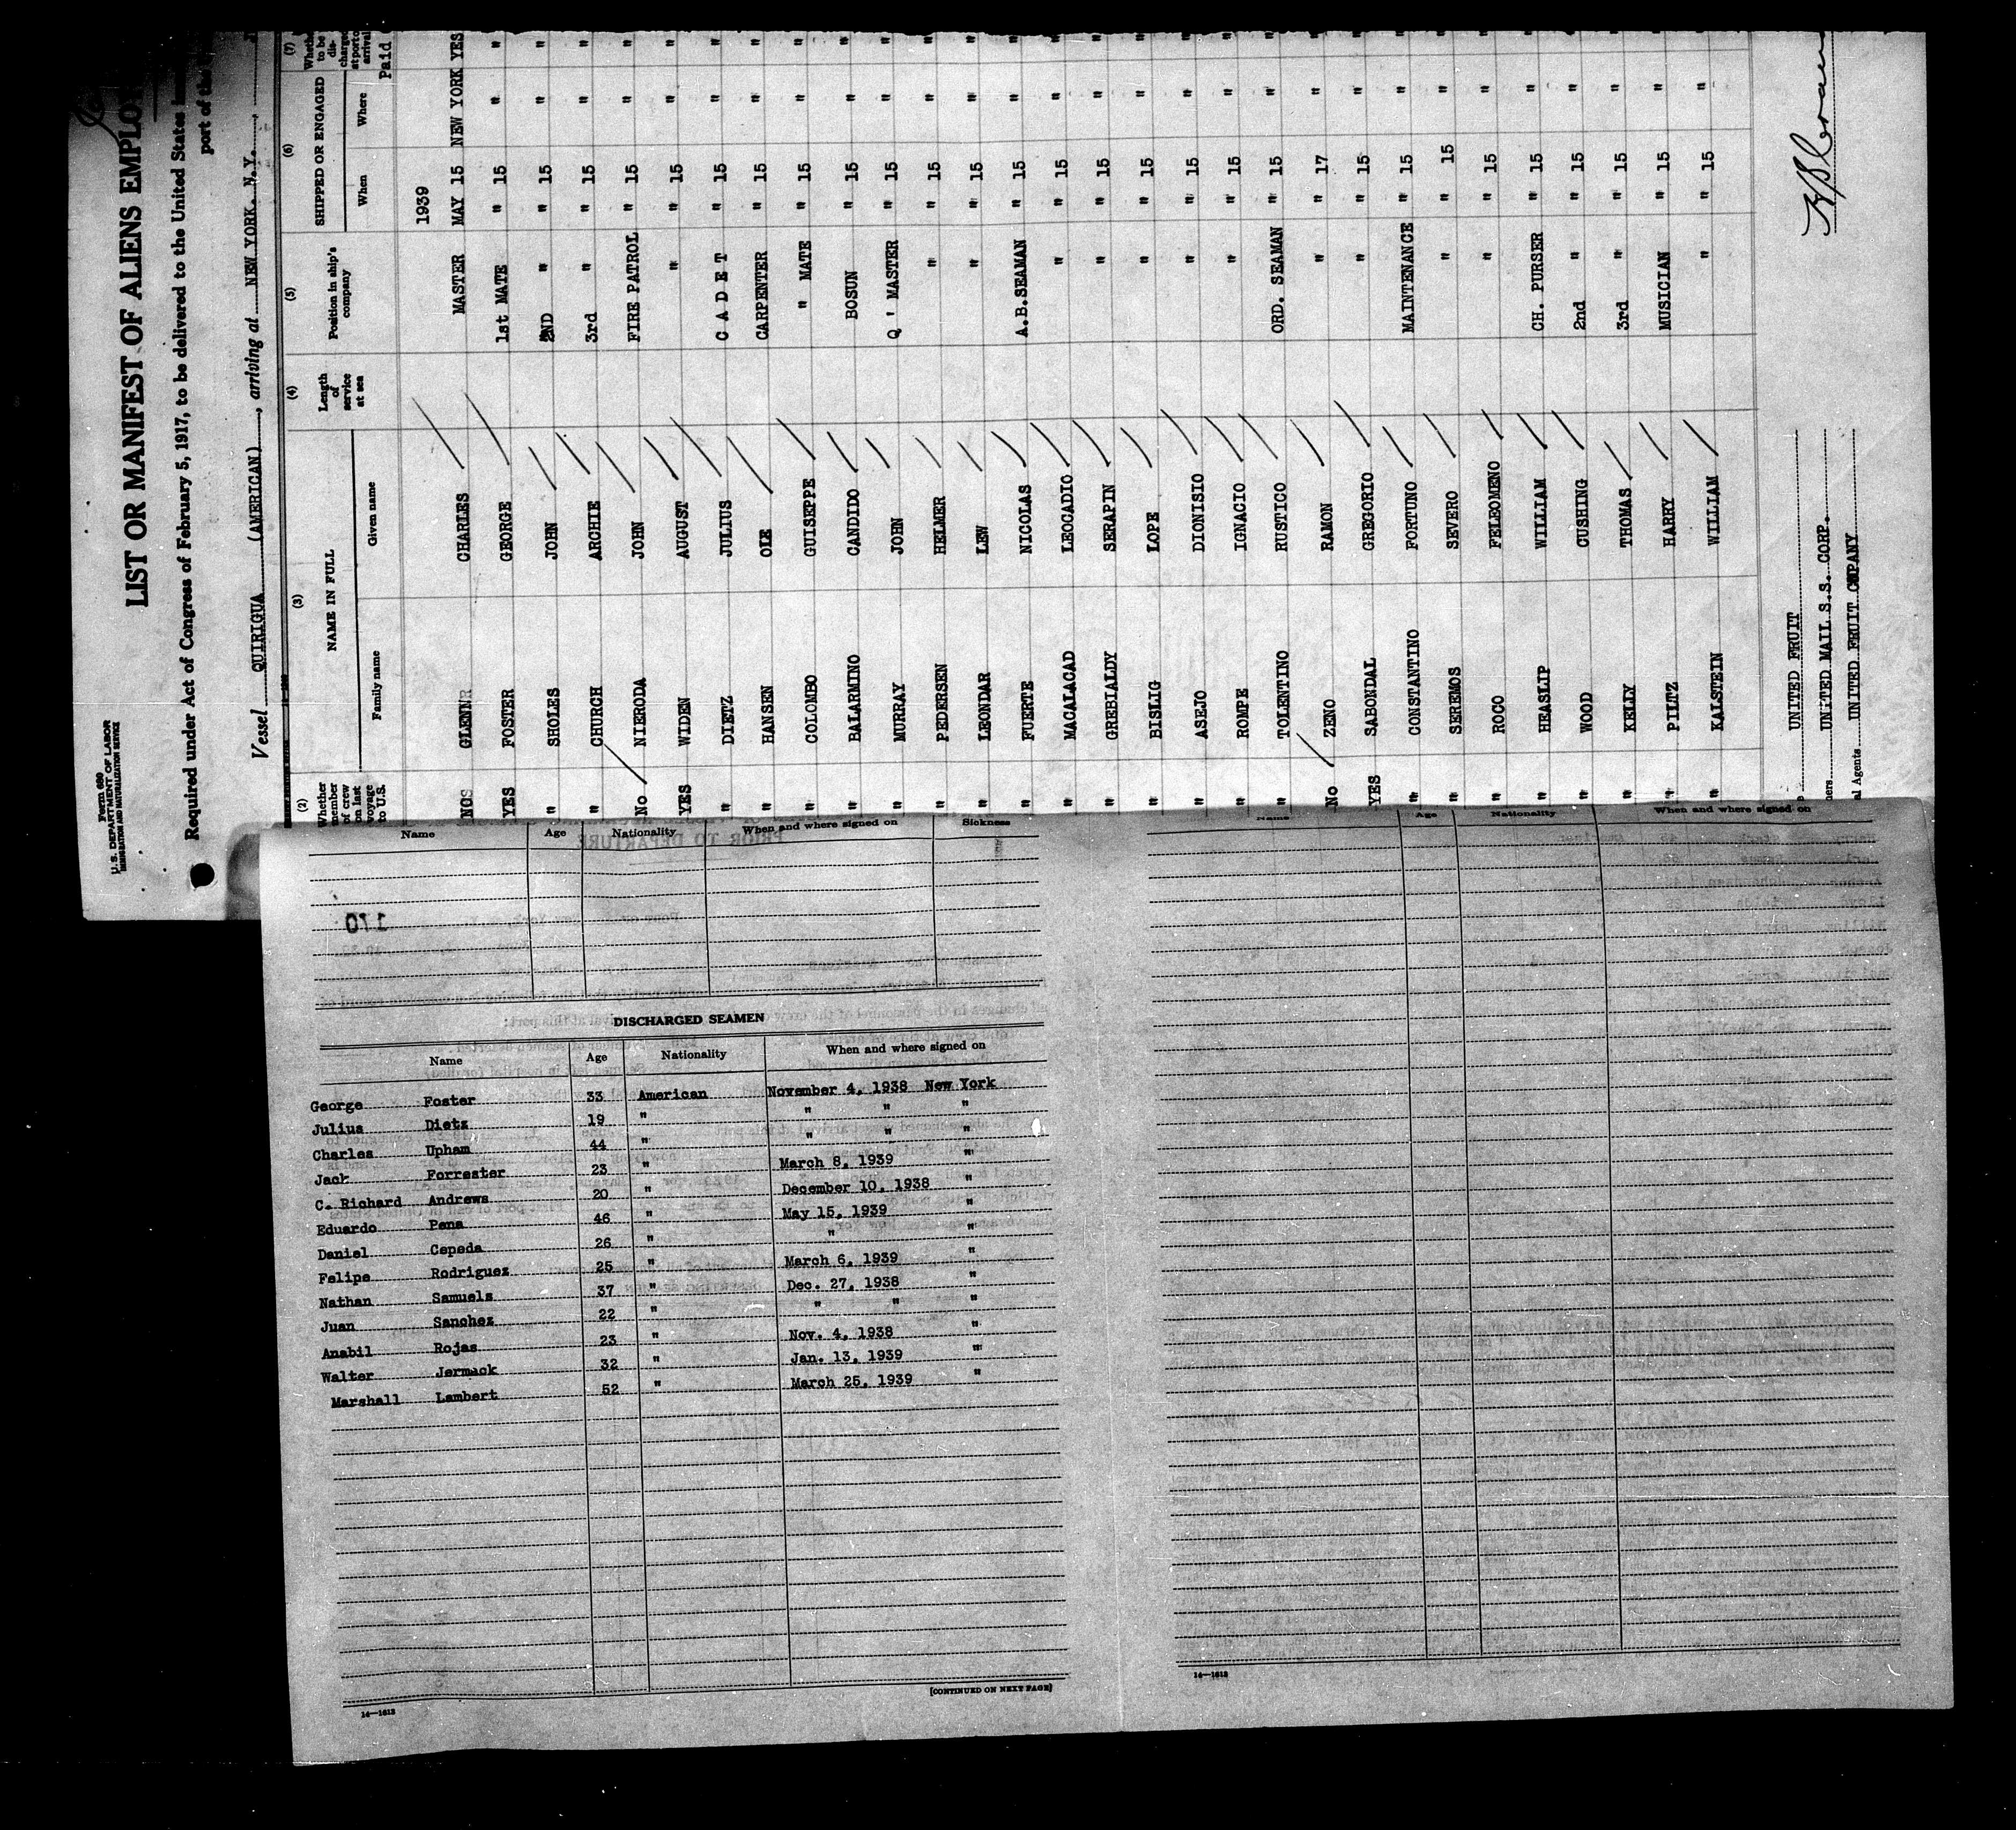 Form 680
U.S. DEPARTMENT OF LABOR
IMMIGRATION AND NATURALIZATION SERVICE
LIST OR MANIFEST OF ALIENS EMPLO
Required under Act of Congress of February 5, 1917, to be delivered to the United States
port of the
Vessel QUIRIGUA (AMERICAN), arriving at NEW YORK. N.Y.
(2) (3) (4) (5) (6) (7)
Whether member of crew on last voyage to U.S. NAME IN FULL Length of service at sea Position in ship's company SHIPPED OR ENGAGED Whether to be discharged at port of arrival
Family name Given name When Where
1939 Paid
GLENN CHARLES MASTER MAY 15 NEW YORK YES
YES FOSTER GEORGE 1st MATE " 15 " "
" SHOLES JOHN 2ND " " 15 " "
" CHURCH ARCHIE 3rd " " 15 " "
No NIERODA JOHN FIRE PATROL " 15 " "
YES WIDEN AUGUST " " 15 " "
" DIETZ JULIUS C A D E T " 15 " "
" HANSEN OLE CARPENTER " 15 " "
" COLOMBO GUISEPPE " MATE " 15 " "
" BALARMINO CANDIDO BOSUN " 15 " "
" MURRAY JOHN Q'MASTER " 15 " "
" PEDERSEN HELMER " " 15 " "
" LEONDAR LEW " " 15 " "
" FUERTE NICOLAS A.B.SEAMAN " 15 " "
" MACALACAD LEOCADIO " " 15 " "
" GREBIALDY SERAPIN " " 15 " "
" BISLIG LOPE " " 15 " "
" ASEJO DIONISIO " " 15 " "
" ROMPE IGNACIO " " 15 " "
" TOLENTINO RUSTICO ORD. SEAMAN " 15 " "
No ZENO RAMON " " 17 " "
YES SABONDAL GREGORIO " " 15 " "
" CONSTANTINO FORTUNO MAINTENANCE " 15 " "
" SEREMOS SEVERO " " 15 " "
" ROCO FELEOMENO " " 15 " "
" HEASLIP WILLIAM CH. PURSER " 15 " "
" WOOD CUSHING 2nd " " 15 " "
" KELLY THOMAS 3rd " " 15 " "
" PILTZ HARRY MUSICIAN " 15 " "
" KALSTEIN WILLIAM " " 15 "
UNITED FRUIT
UNITED MAIL S.S. CORP.
Agents UNITED FRUIT COMPANY
Name Age Nationality When and where signed on Sickness
170
DISCHARGED SEAMEN
Name Age Nationality When and where signed on
George Foster 33 American November 4, 1938 New York
Julius Dietz 19 " " " "
Charles Upham 44 " " " "
Jack Forrester 23 " March 8, 1939 "
C. Richard Andrews 20 " December 10, 1938 "
Eduardo Pena 46 " May 15, 1939 "
Daniel Cepeda 26 " " "
Felipe Rodriguez 25 " March 6, 1939 "
Nathan Samuels 37 " Dec. 27, 1938 "
Juan Sanchez 22 " " " "
Anabil Rojas 23 " Nov. 4, 1938 "
Walter Jermack 32 " Jan. 13, 1939 "
Marshall Lambert 52 " March 25, 1939 "
[CONTINUED ON NEXT PAGE]
14—1613
Name Age Nationality When and where signed on
14—1613